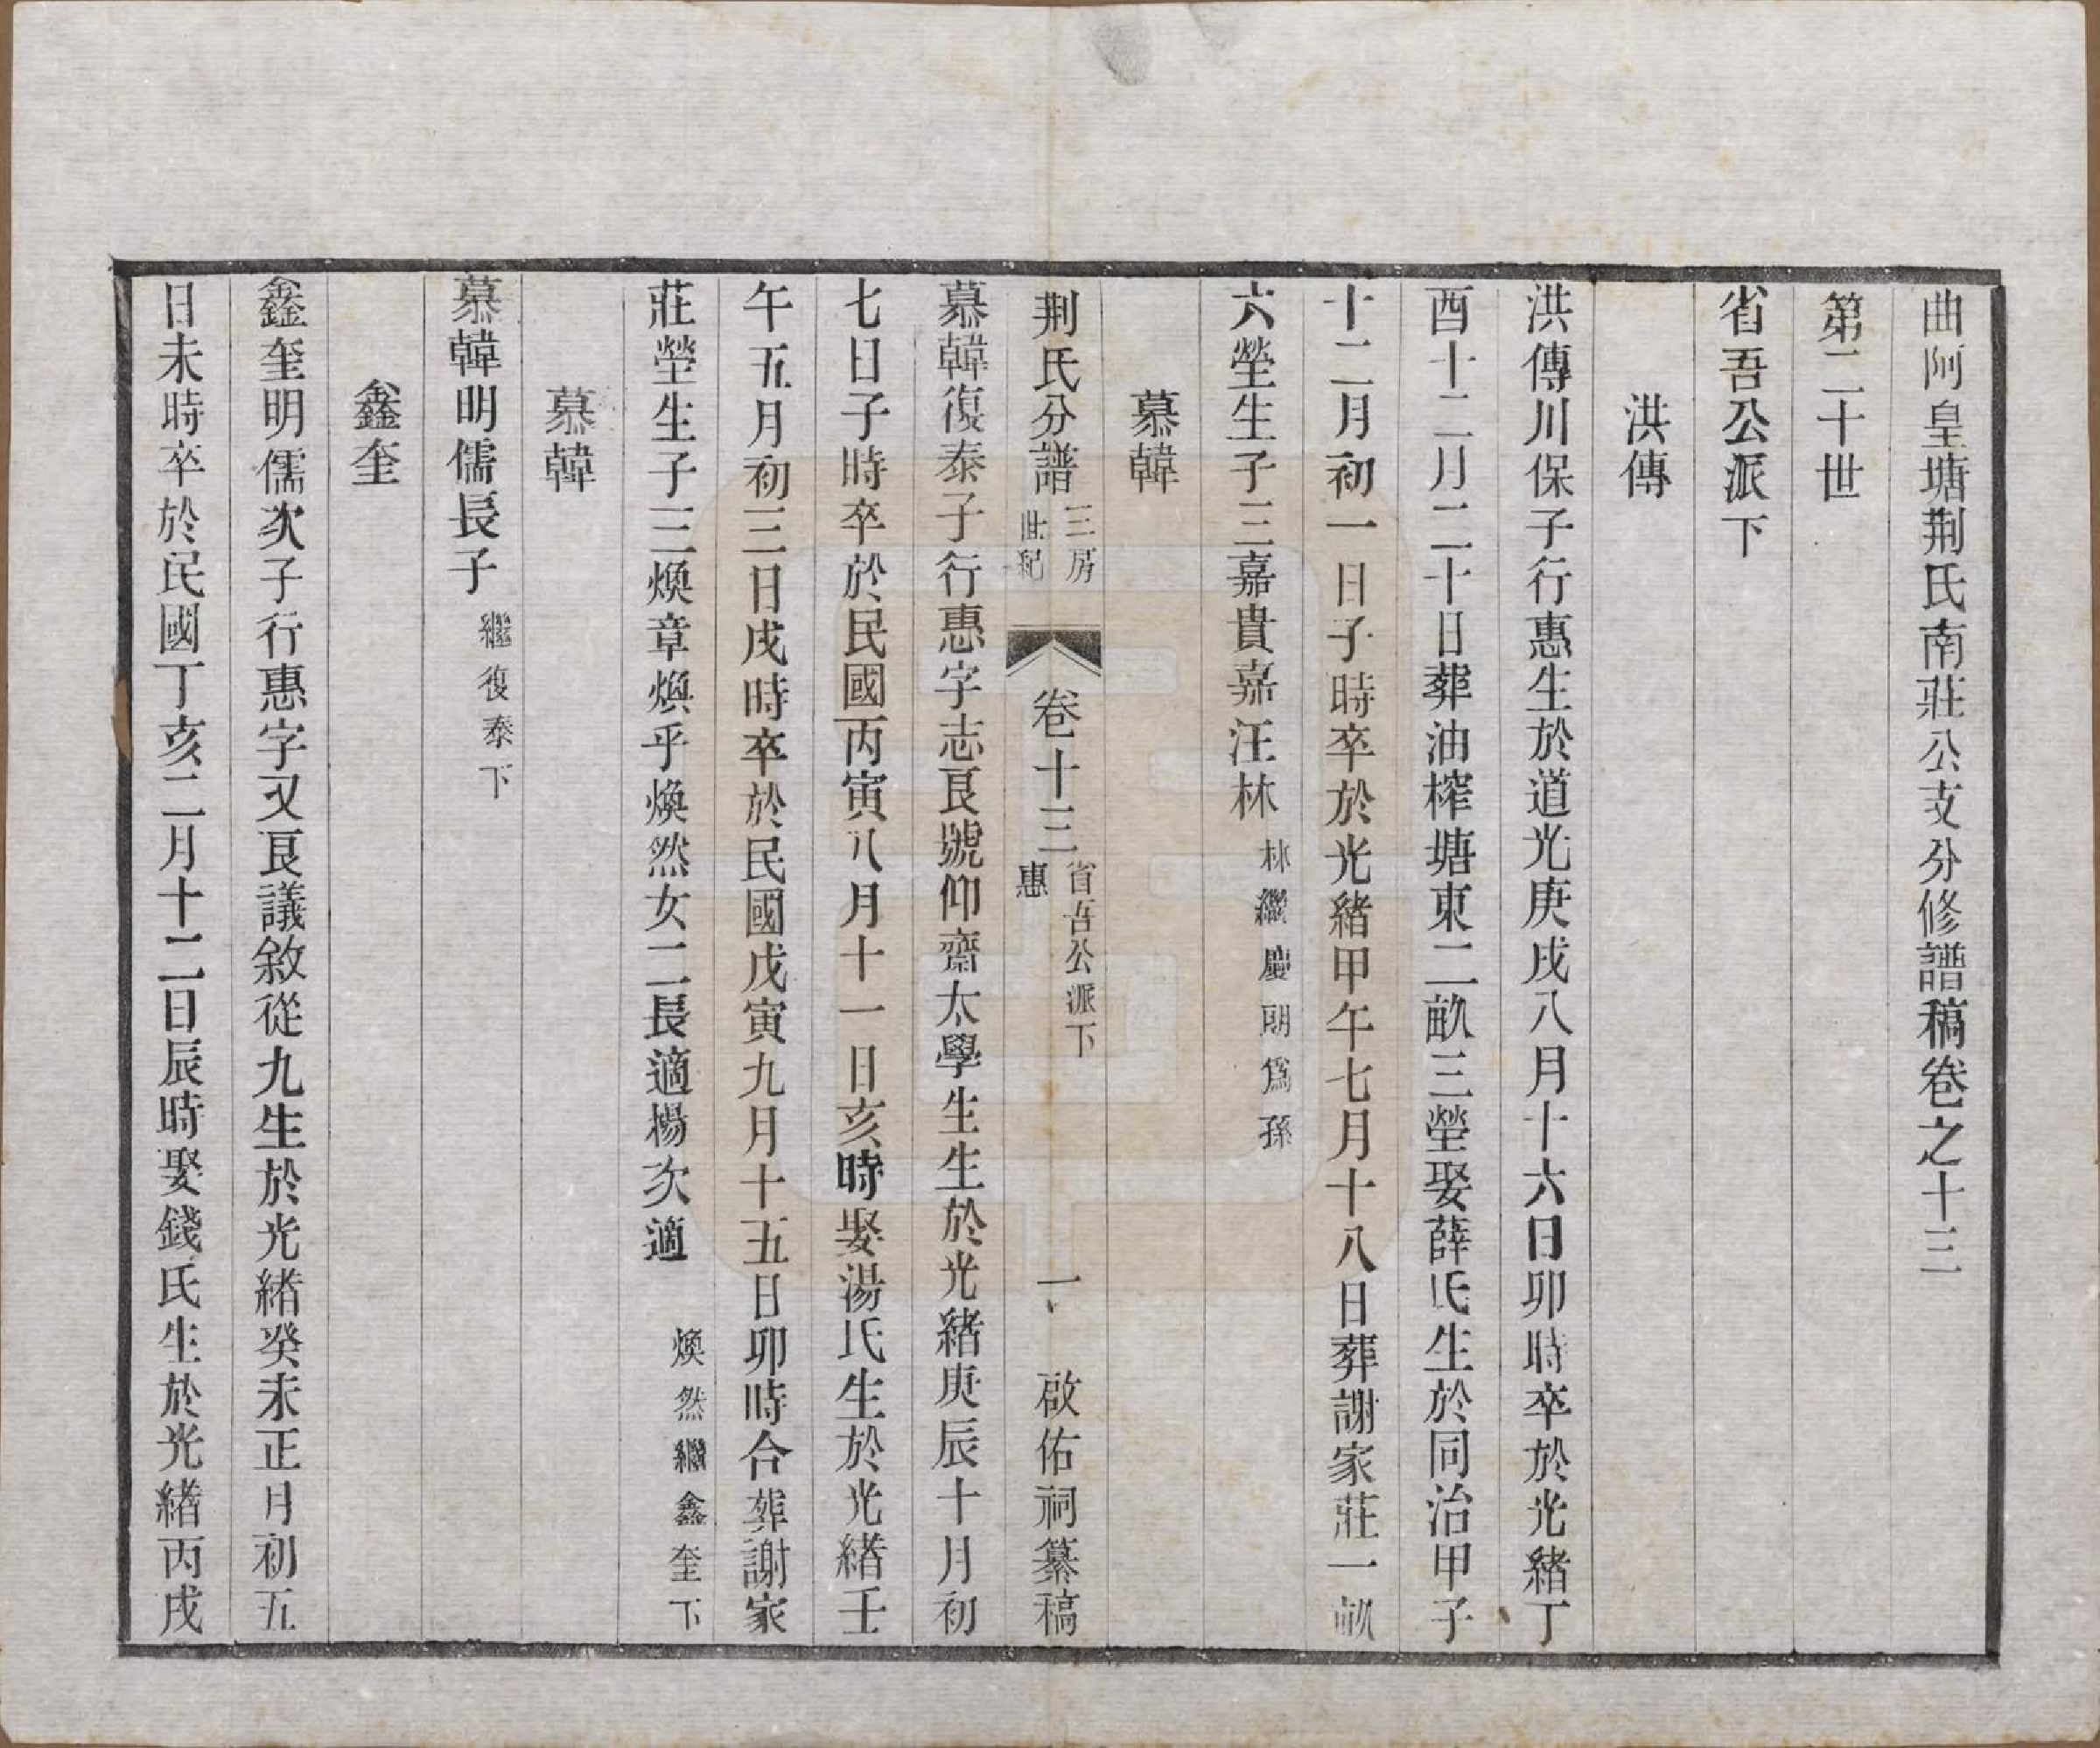 曲阿皇塘荆氏南莊公支分修譜稿卷之十三
第二十世
省吾公派下
洪傳
洪傳川保子行惠生於道光庚戌八月十六日卯時卒於光緒丁
酉十二月二十日葬油榨塘東二畝三塋娶薛氏生於同治甲子
十二月初一日子時卒於光緒甲午七月十八日葬謝家莊一畝
六塋生子三嘉貴嘉汪林林繼慶朗爲孫
慕韓
荆氏分譜 三房世紀 卷十三 省吾公派下惠 一 啟佑祠纂稿
慕韓復泰子行惠字志艮號仰齋太學生生於光緒庚辰十月初
七日子時卒於民國丙寅八月十一日亥時娶湯氏生於光緒壬
午五月初三日戌時卒於民國戊寅九月十五日卯時合葬謝家
莊塋生子三煥章煥乎煥然女二長適楊次適 煥然繼鑫奎下
慕韓
慕韓明儒長子繼復泰下
鑫奎
鑫奎明儒次子行惠字又艮議敘從九生於光緒癸未正月初五
日未時卒於民國丁亥二月十二日辰時娶錢氏生於光緒丙戌